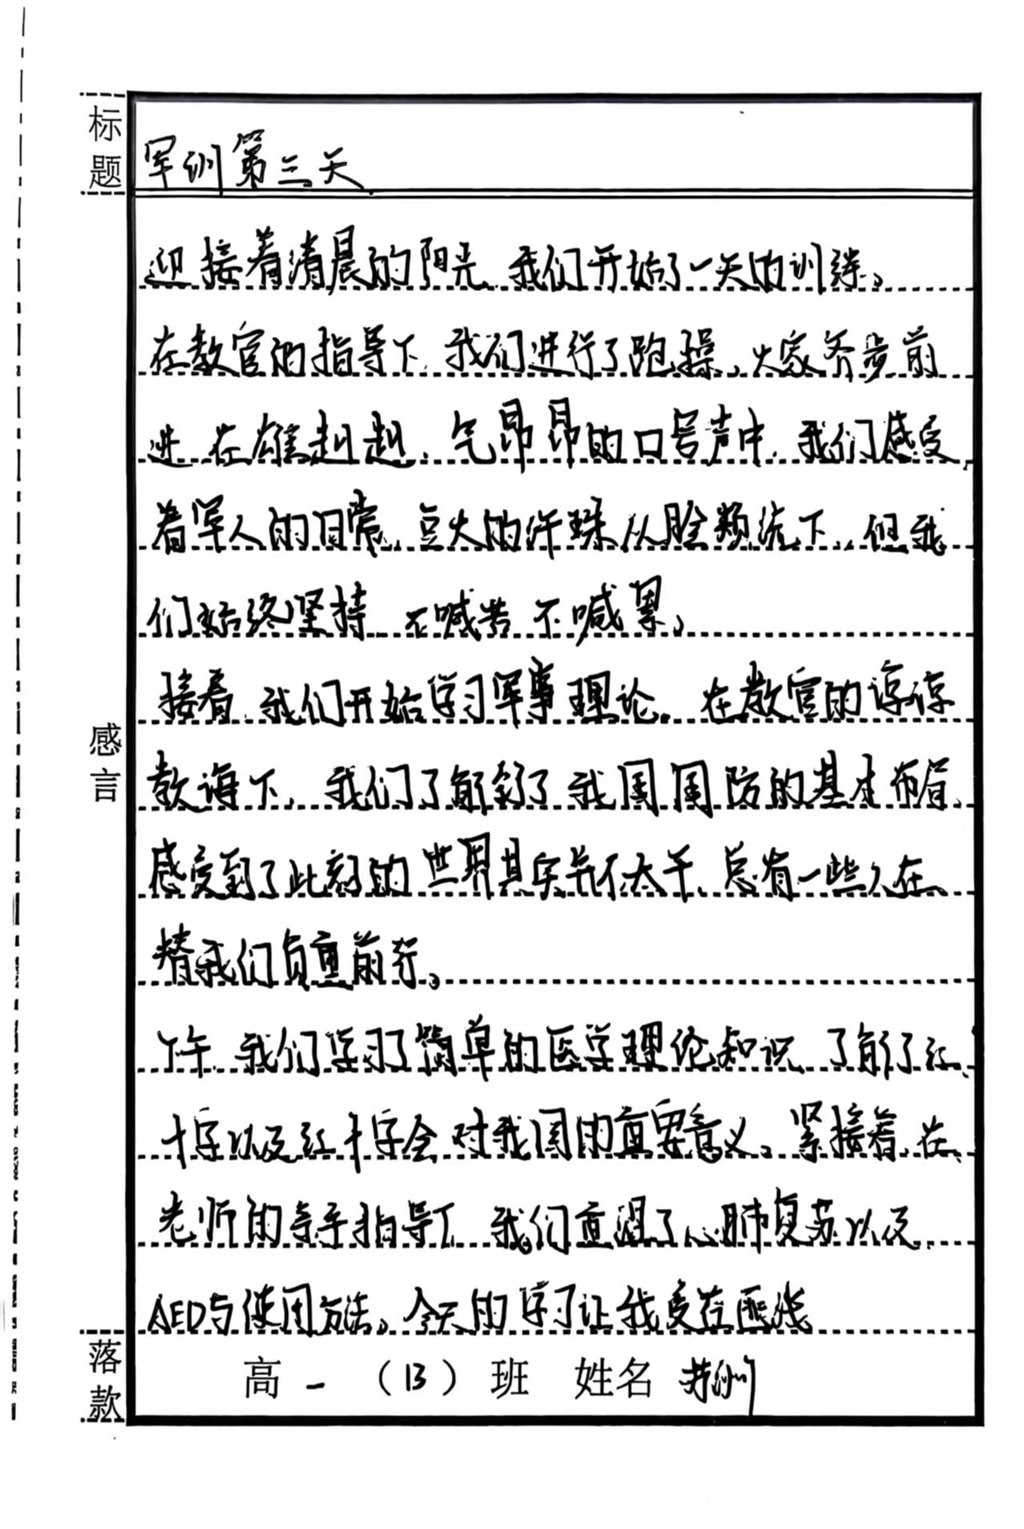 标题
军训第三天
迎接着清晨的阳光,我们开始了一天的训练。
在教官的指导下,我们进行了跑操。大家齐步前
进,在雄赳赳,气昂昂的口号声中,我们感受
着军人的日常,豆大的汗珠从脸颊流下,但我
们始终坚持,不喊苦,不喊累。
接着,我们开始学习军事理论。在教官的谆谆
教诲下,我们了解到了我国国防的基本布局,
感受到了此刻的世界其实并不太平,总有一些人在
替我们负重前行。
感言
下午,我们学习了简单的医学理论知识,了解了红
十字以及红十字会对我国的重要意义。紧接着,在
老师的亲手指导下,我们重温了心肺复苏以及
AED与使用方法。今天的学习让我受益匪浅
落款
高一(13)班 姓名